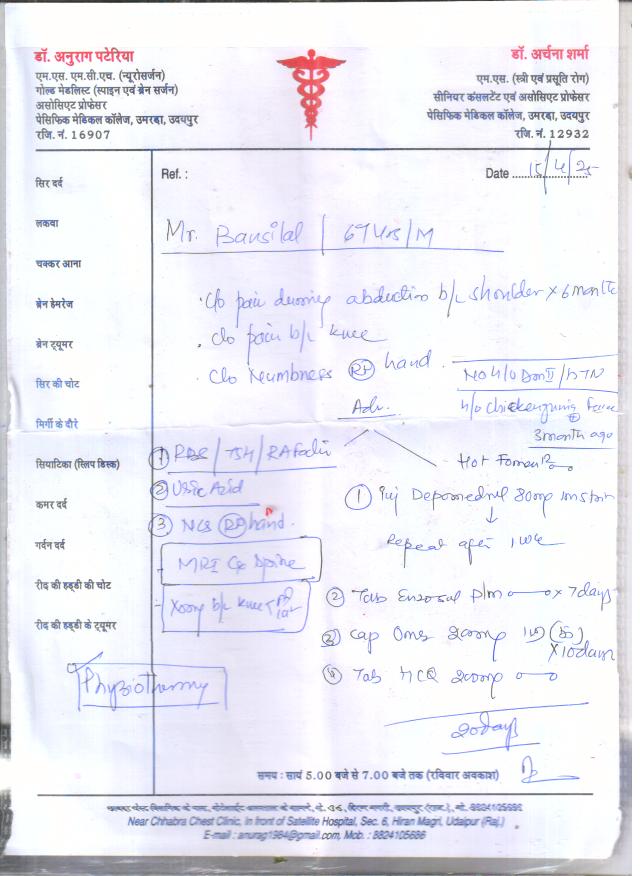 डॉ. अनुराग पटेरिया
एम.एस. एम.सी.एच. (न्यूरोसर्जन)
गोल्ड मेडलिस्ट (स्पाइन एवं ब्रेन सर्जन)
असोसिएट प्रोफेसर
पेसिफिक मेडिकल कॉलेज, उमरडा, उदयपुर
रजि. नं. 16907
डॉ. अर्चना शर्मा
एम.एस. (स्त्री एवं प्रसूति रोग)
सीनियर कंसलटेंट एवं असोसिएट प्रोफेसर
पेसिफिक मेडिकल कॉलेज, उमरडा, उदयपुर
रजि. नं. 12932
Ref. :
Date ..... 15/4/25
सिर दर्द
लकवा
चक्कर आना
ब्रेन हेमरेज
ब्रेन ट्यूमर
सिर की चोट
मिर्गी के दौरे
सियाटिका (स्लिप डिस्क)
कमर दर्द
गर्दन दर्द
रीढ की हड्डी की चोट
रीढ की हड्डी के ट्यूमर
Mr. Bansilal / 67 yrs/M
. C/o pain during abduction b/L shoulder x 6 month
. C/o pain b/L knee
. C/o Numbness Rt hand.
No H/o DM II / HTN
H/o chickengunia Fever
3 month ago
Adv.
① RBS / TSH / RA Factor
② Uric Acid
③ NCS Rt hand.
MRI Cx Spine
Xray b/L knee AP Lat
Physiotherapy
Hot Foment
① Inj Depomedrol 80mg
↓
Repeat after 1 wk
② Tab Enzosul P/M x 7 days
③ Cap Oms 20mg x 10 days
④ Tab HCQ 200mg
20 days
समय : सायं 5.00 बजे से 7.00 बजे तक (रविवार अवकाश)
Near Chhabra Chest Clinic, In front of Satellite Hospital, Sec. 6, Hiran Magri, Udaipur (Raj.)
E-mail : anurag1984@gmail.com, Mob. : 8824105686